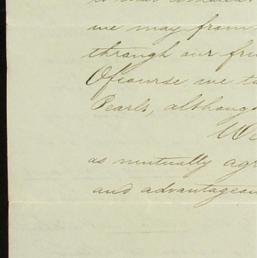 we may from
through our fri
Ofcourse we t
Pearls, althoug
We
as mutually agr
and advantageou